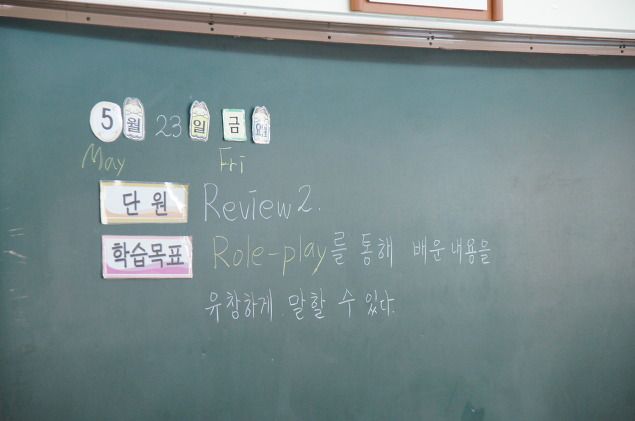 5 월 23 일 금 요일
May Fri
단원 Review 2.
학습목표 Role-play를 통해 배운 내용을
유창하게 말할 수 있다.